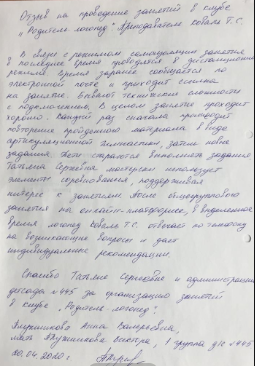 Отзыв на проведение занятий в клубе
"Родители логопед" Преподаватель Коваль Т.С.
В связи с режимом самоизоляции занятия
в последнее время проводятся в дистанционном
режиме. Время заранее сообщается по
электронной почте и приходит ссылка
на занятие. Бывают технические сложности
с подключением. В целом занятие проходит
хорошо. Каждый раз сначала проходит
повторение пройденного материала в виде
артикуляционной гимнастики, затем новые
задания. Дети стараются выполнять задания
Татьяна Сергеевна мастерски использует
элементы соревнования, поддерживая
интерес к занятиям. После
занятия на онлайн-платформе, в
время логопед Коваль Т.С. отвечает по
на возникающие вопросы и дает
индивидуальные рекомендации.
Спасибо Татьяне Сергеевне и администрации
детсада №445 за организацию занятий
в клубе "Родители логопед".
Анна
мама 1 группа д/с №445
20.04.2020 г.